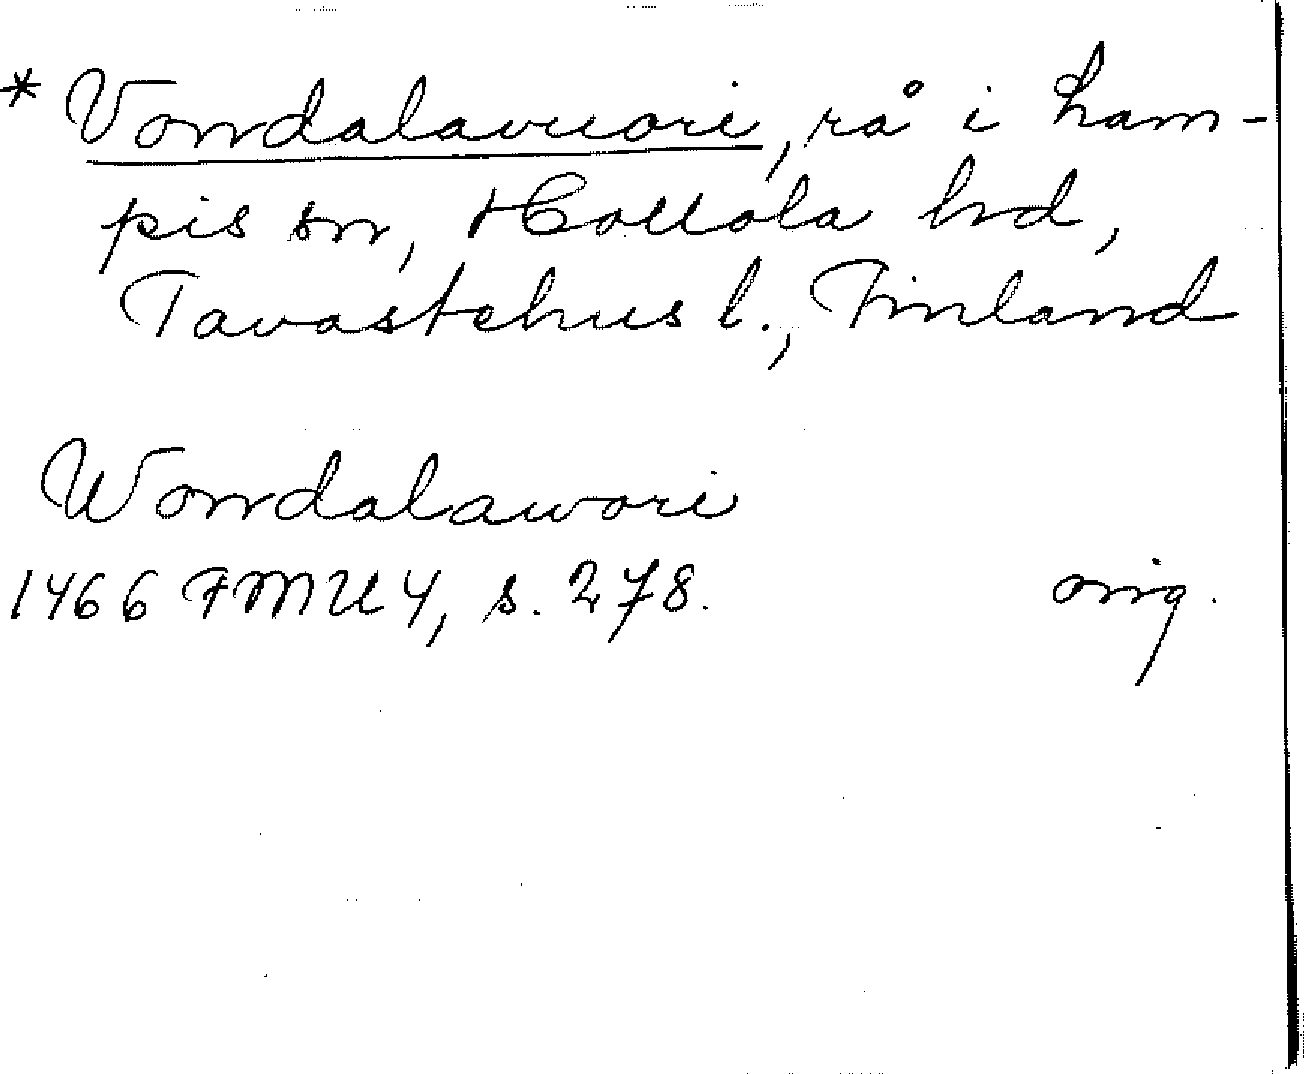 * Vonndalavuori, rå i Lam-
pis sn, Hollola hrd,
Tavastehus l., Finland
Wonndalawori
1466 FMU 4, s. 278. orig.